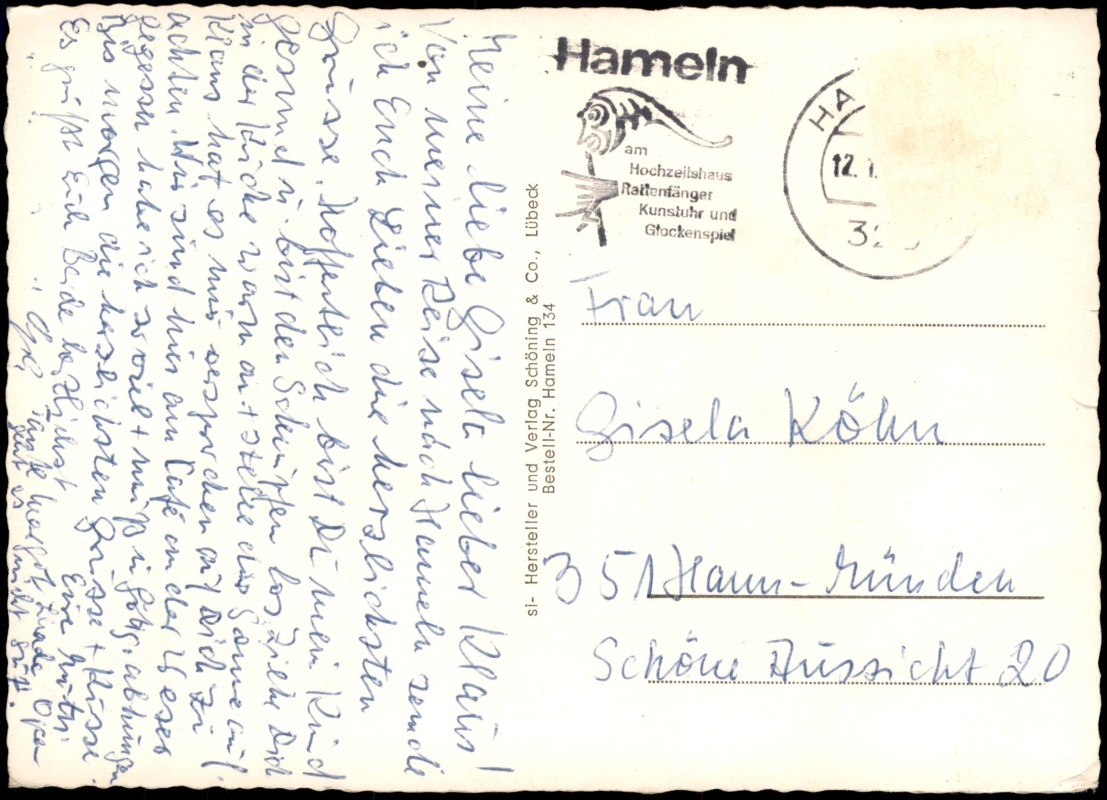 Meine liebe Gisela lieber Klaus!
Von meiner Reise nach Hameln sende
ich Euch Lieben die herzlichsten
Grüsse. Hoffentlich bist Du mein Kind
gesund u. bist den Schnupfen los, Ziehe Dich
in der Küche warm an + stelle das Gas
Klaus hat es mir versprochen auf Dich zu
achten. Wir sind hier am Café an der Weser
gegessen habe ich soviel + muß
Bis morgen die herzlichsten Grüsse + Küsse.
Eure Mutti
Es grüßt Euch Beide herzlichst
Tante Margot, Opa
Hameln
am
Hochzeitshaus
Rattenfänger
Kunstuhr und
Glockenspiel
HA
12.1
32
si- Hersteller und Verlag Schöning & Co., Lübeck
Bestell-Nr. Hameln 134
Frau
Gisela Köhn
351 Hann-Münden
Schöne Aussicht 20